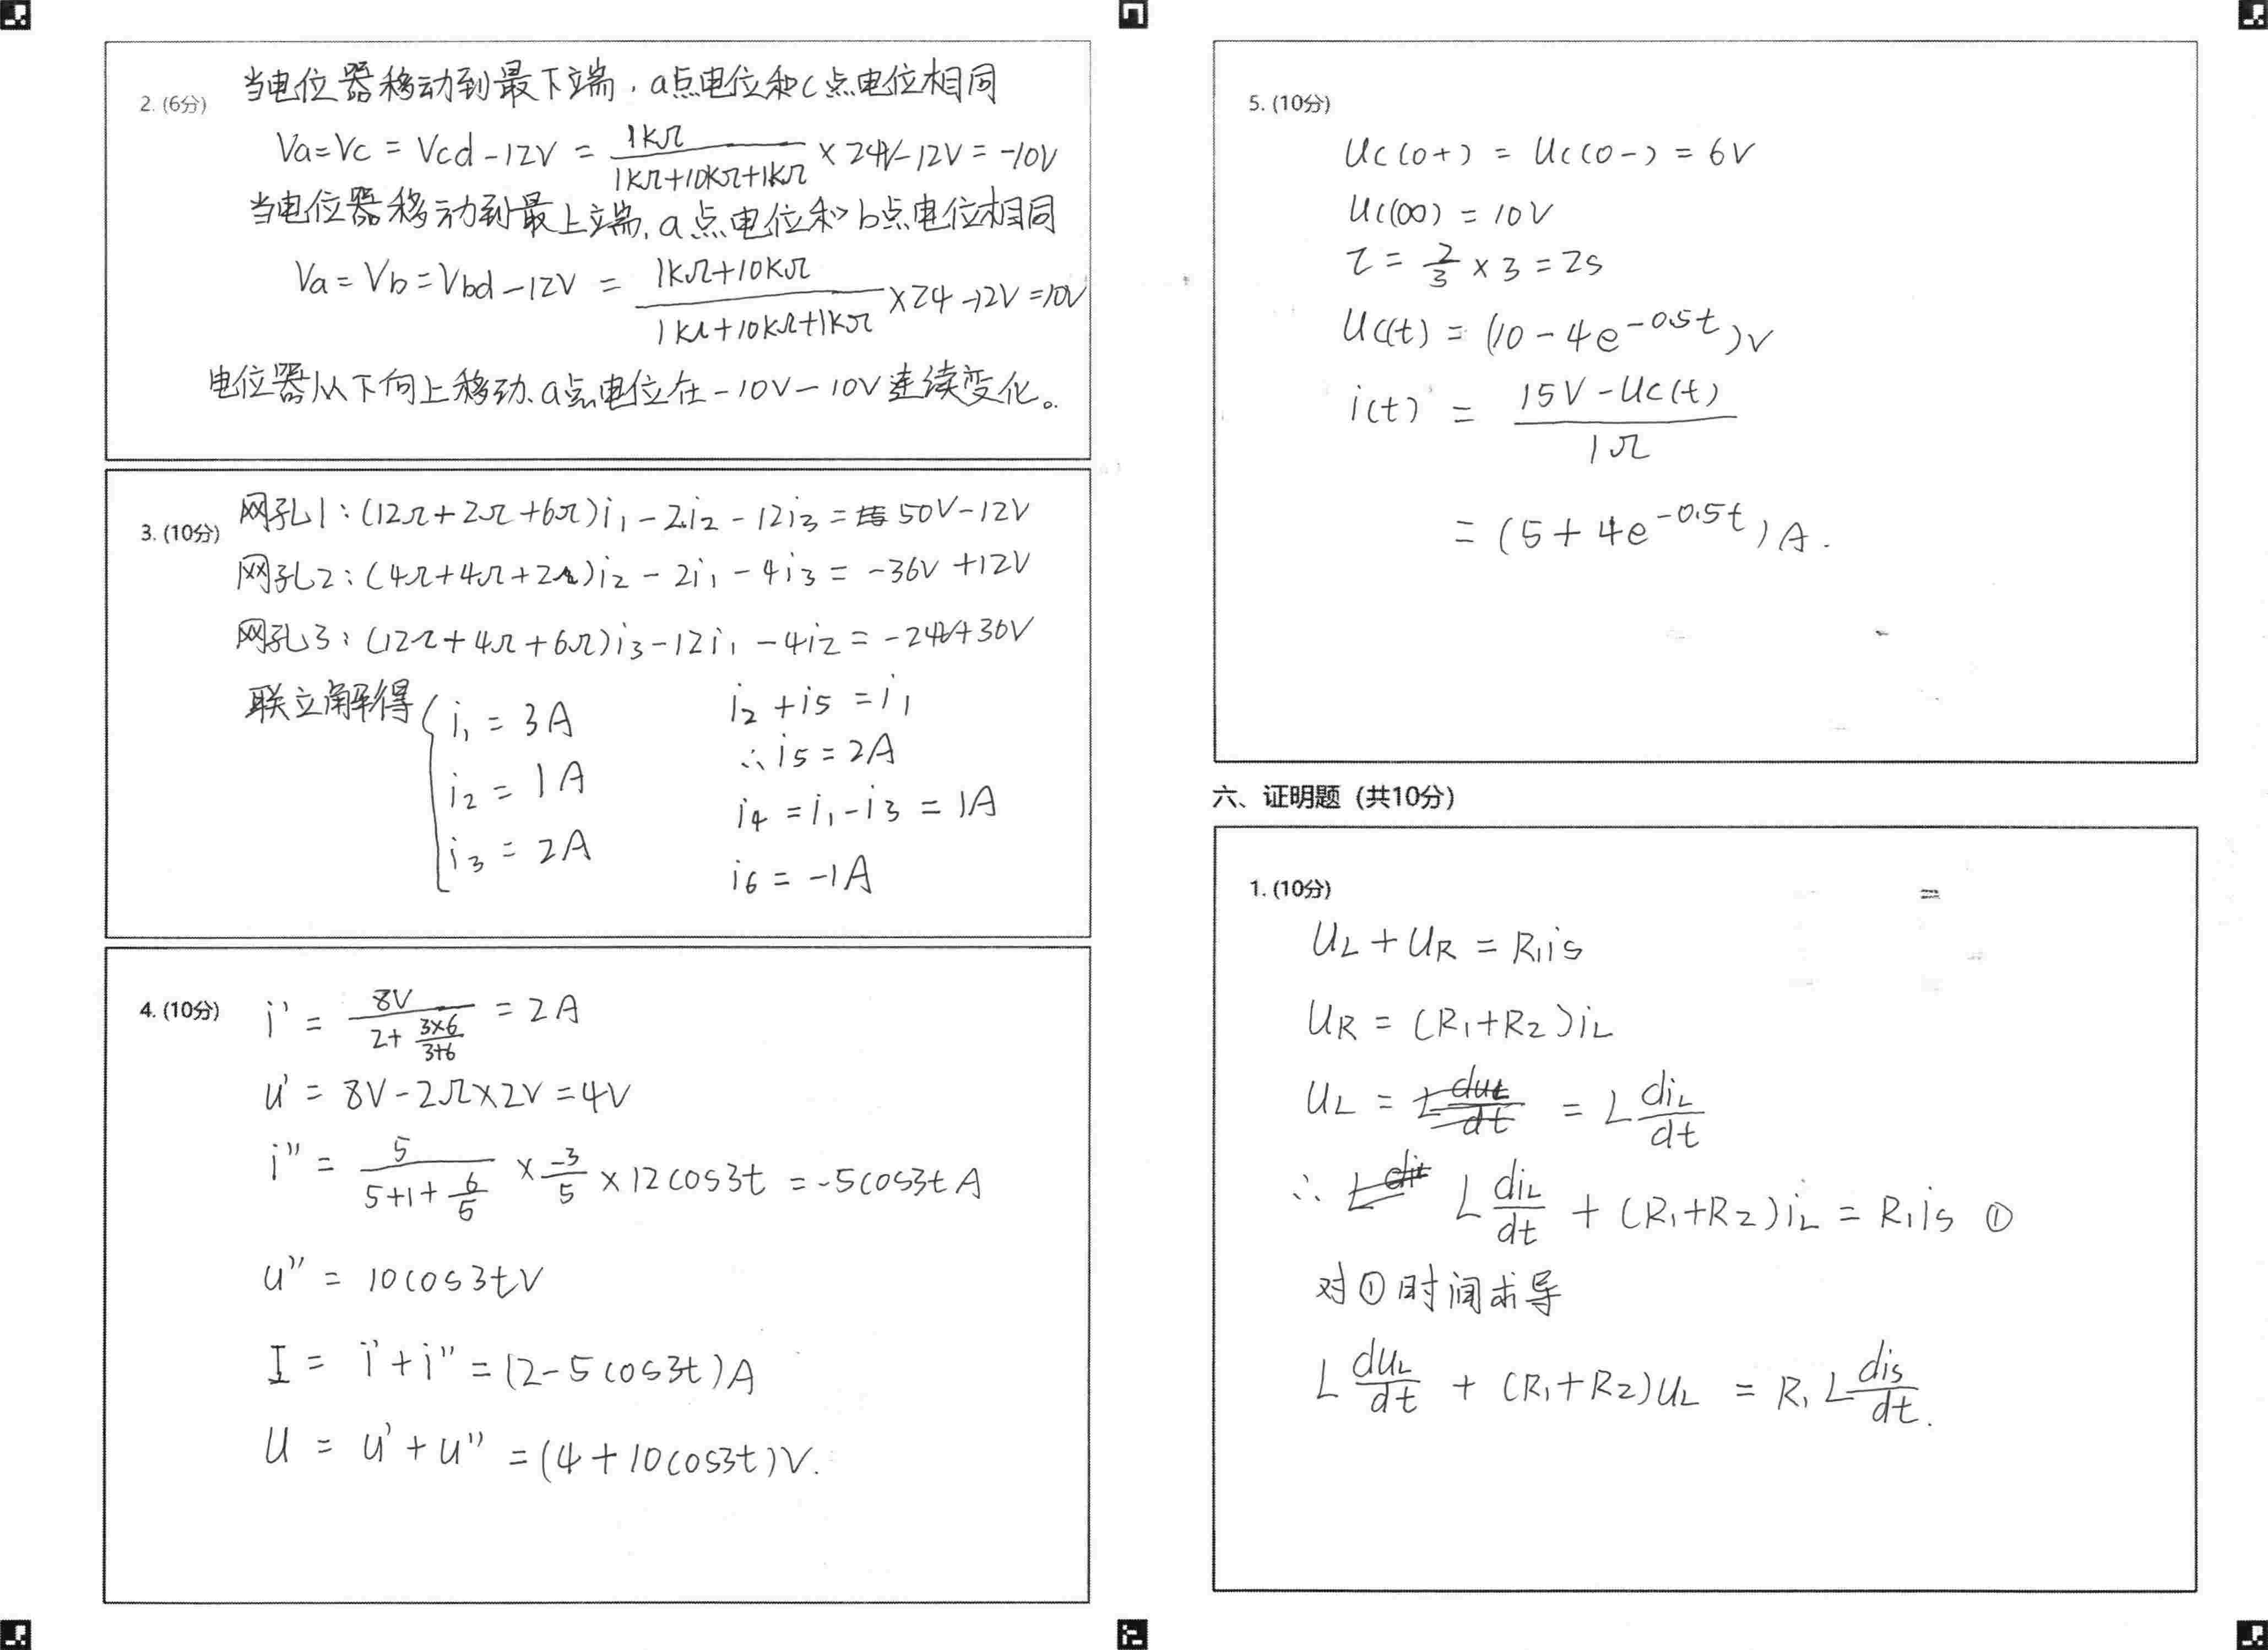 2. (6分)
当电位器移动到最下端，a点电位和c点电位相同
Va=Vc = Vcd-12V = 1KΩ/(1KΩ+10KΩ+1KΩ) × 24V-12V = -10V
当电位器移动到最上端，a点电位和b点电位相同
Va = Vb = Vbd-12V = (1KΩ+10KΩ)/(1KΩ+10KΩ+1KΩ) ×24-12V=10V
电位器从下向上移动、a点电位在-10V-10V连续变化。
3. (10分)
网孔1：(12Ω+2Ω+6Ω)i₁-2i₂-12i₃ = 50V-12V
网孔2：(4Ω+4Ω+2Ω)i₂ - 2i₁ - 4i₃ = -36V +12V
网孔3：(12Ω+4Ω+6Ω)i₃-12i₁ -4i₂ = -24V+36V
联立解得 { i₁ = 3A
i₂ = 1A
i₃ = 2A
i₂ + i₅ = i₁
∴ i₅ = 2A
i₄ = i₁-i₃ = 1A
i₆ = -1A
4. (10分)
i' = 8V/(2+ (3×6)/(3+6)) = 2A
u' = 8V-2Ω×2V=4V
i'' = 5/(5+1+ 6/5) × -3/5 × 12cos3t = -5cos3t A
u'' = 10cos3tV
I = i'+i'' = (2-5cos3t)A
U = u'+u'' =(4+10cos3t)V.
5. (10分)
Uc(0+) = Uc(0-) = 6V
Uc(∞) = 10V
τ = 2/3 × 3 = 2s
Uc(t) = (10-4e^-0.5t)V
i(t) = (15V-Uc(t))/1Ω
= (5+4e^-0.5t)A.
六、证明题（共10分）
1. (10分)
=
UL+UR = R₁is
UR = (R₁+R₂)iL
UL = L duL/dt = L diL/dt
∴ L diL/dt + (R₁+R₂)iL = R₁is ①
对①时间求导
L duL/dt + (R₁+R₂)UL = R₁ L dis/dt.